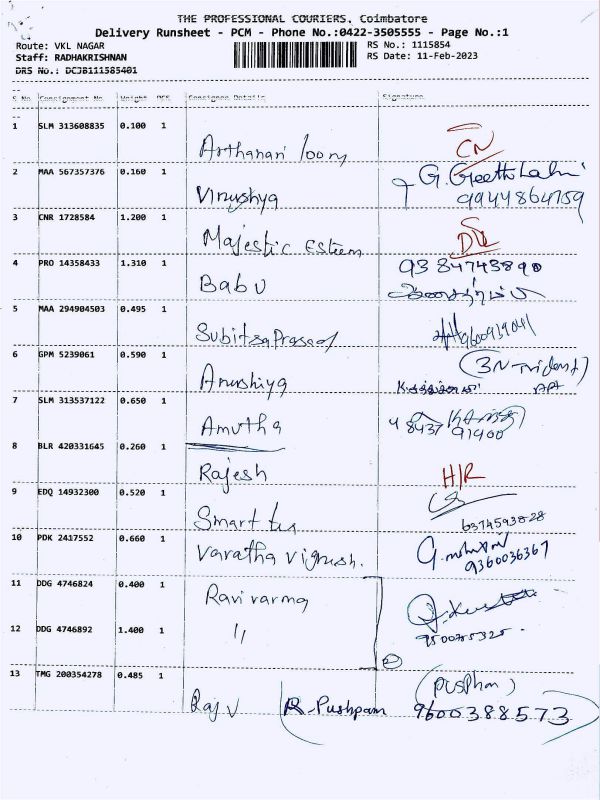 THE PROFESSIONAL COURIERS, Coimbatore
Delivery Runsheet - PCM - Phone No.:0422-3505555 - Page No.:1
Route: VKL NAGAR RS No.: 1115854
Staff: RADHAKRISHNAN RS Date: 11-Feb-2023
DRS No.: DCJB111585401
S No Consignment No. Weight PCS Consignee Details Signature
1 SLM 313608835 0.100 1 Arthanari loom CN
2 MAA 567357376 0.160 1 Virushya G. 9944864759
3 CNR 1728584 1.200 1 Majestic Esteem
4 PRO 14358433 1.310 1 Babu 9384743890
5 MAA 294904503 0.495 1 9600939041
6 GPM 5239061 0.590 1 Anushiya (3N-Trident) Apt
7 SLM 313537122 0.650 1 Amutha 48437 91400
8 BLR 420331645 0.260 1 Rajesh H/R
9 EDQ 14932300 0.520 1 Smart 6374593828
10 PDK 2417552 0.660 1 Varatha Vignesh. 9360036367
11 DDG 4746824 0.400 1 Ravivarma
12 DDG 4746892 1.400 1 " 9500785325
13 TMG 200354278 0.485 1 Raju R. Pushpam 9600388573